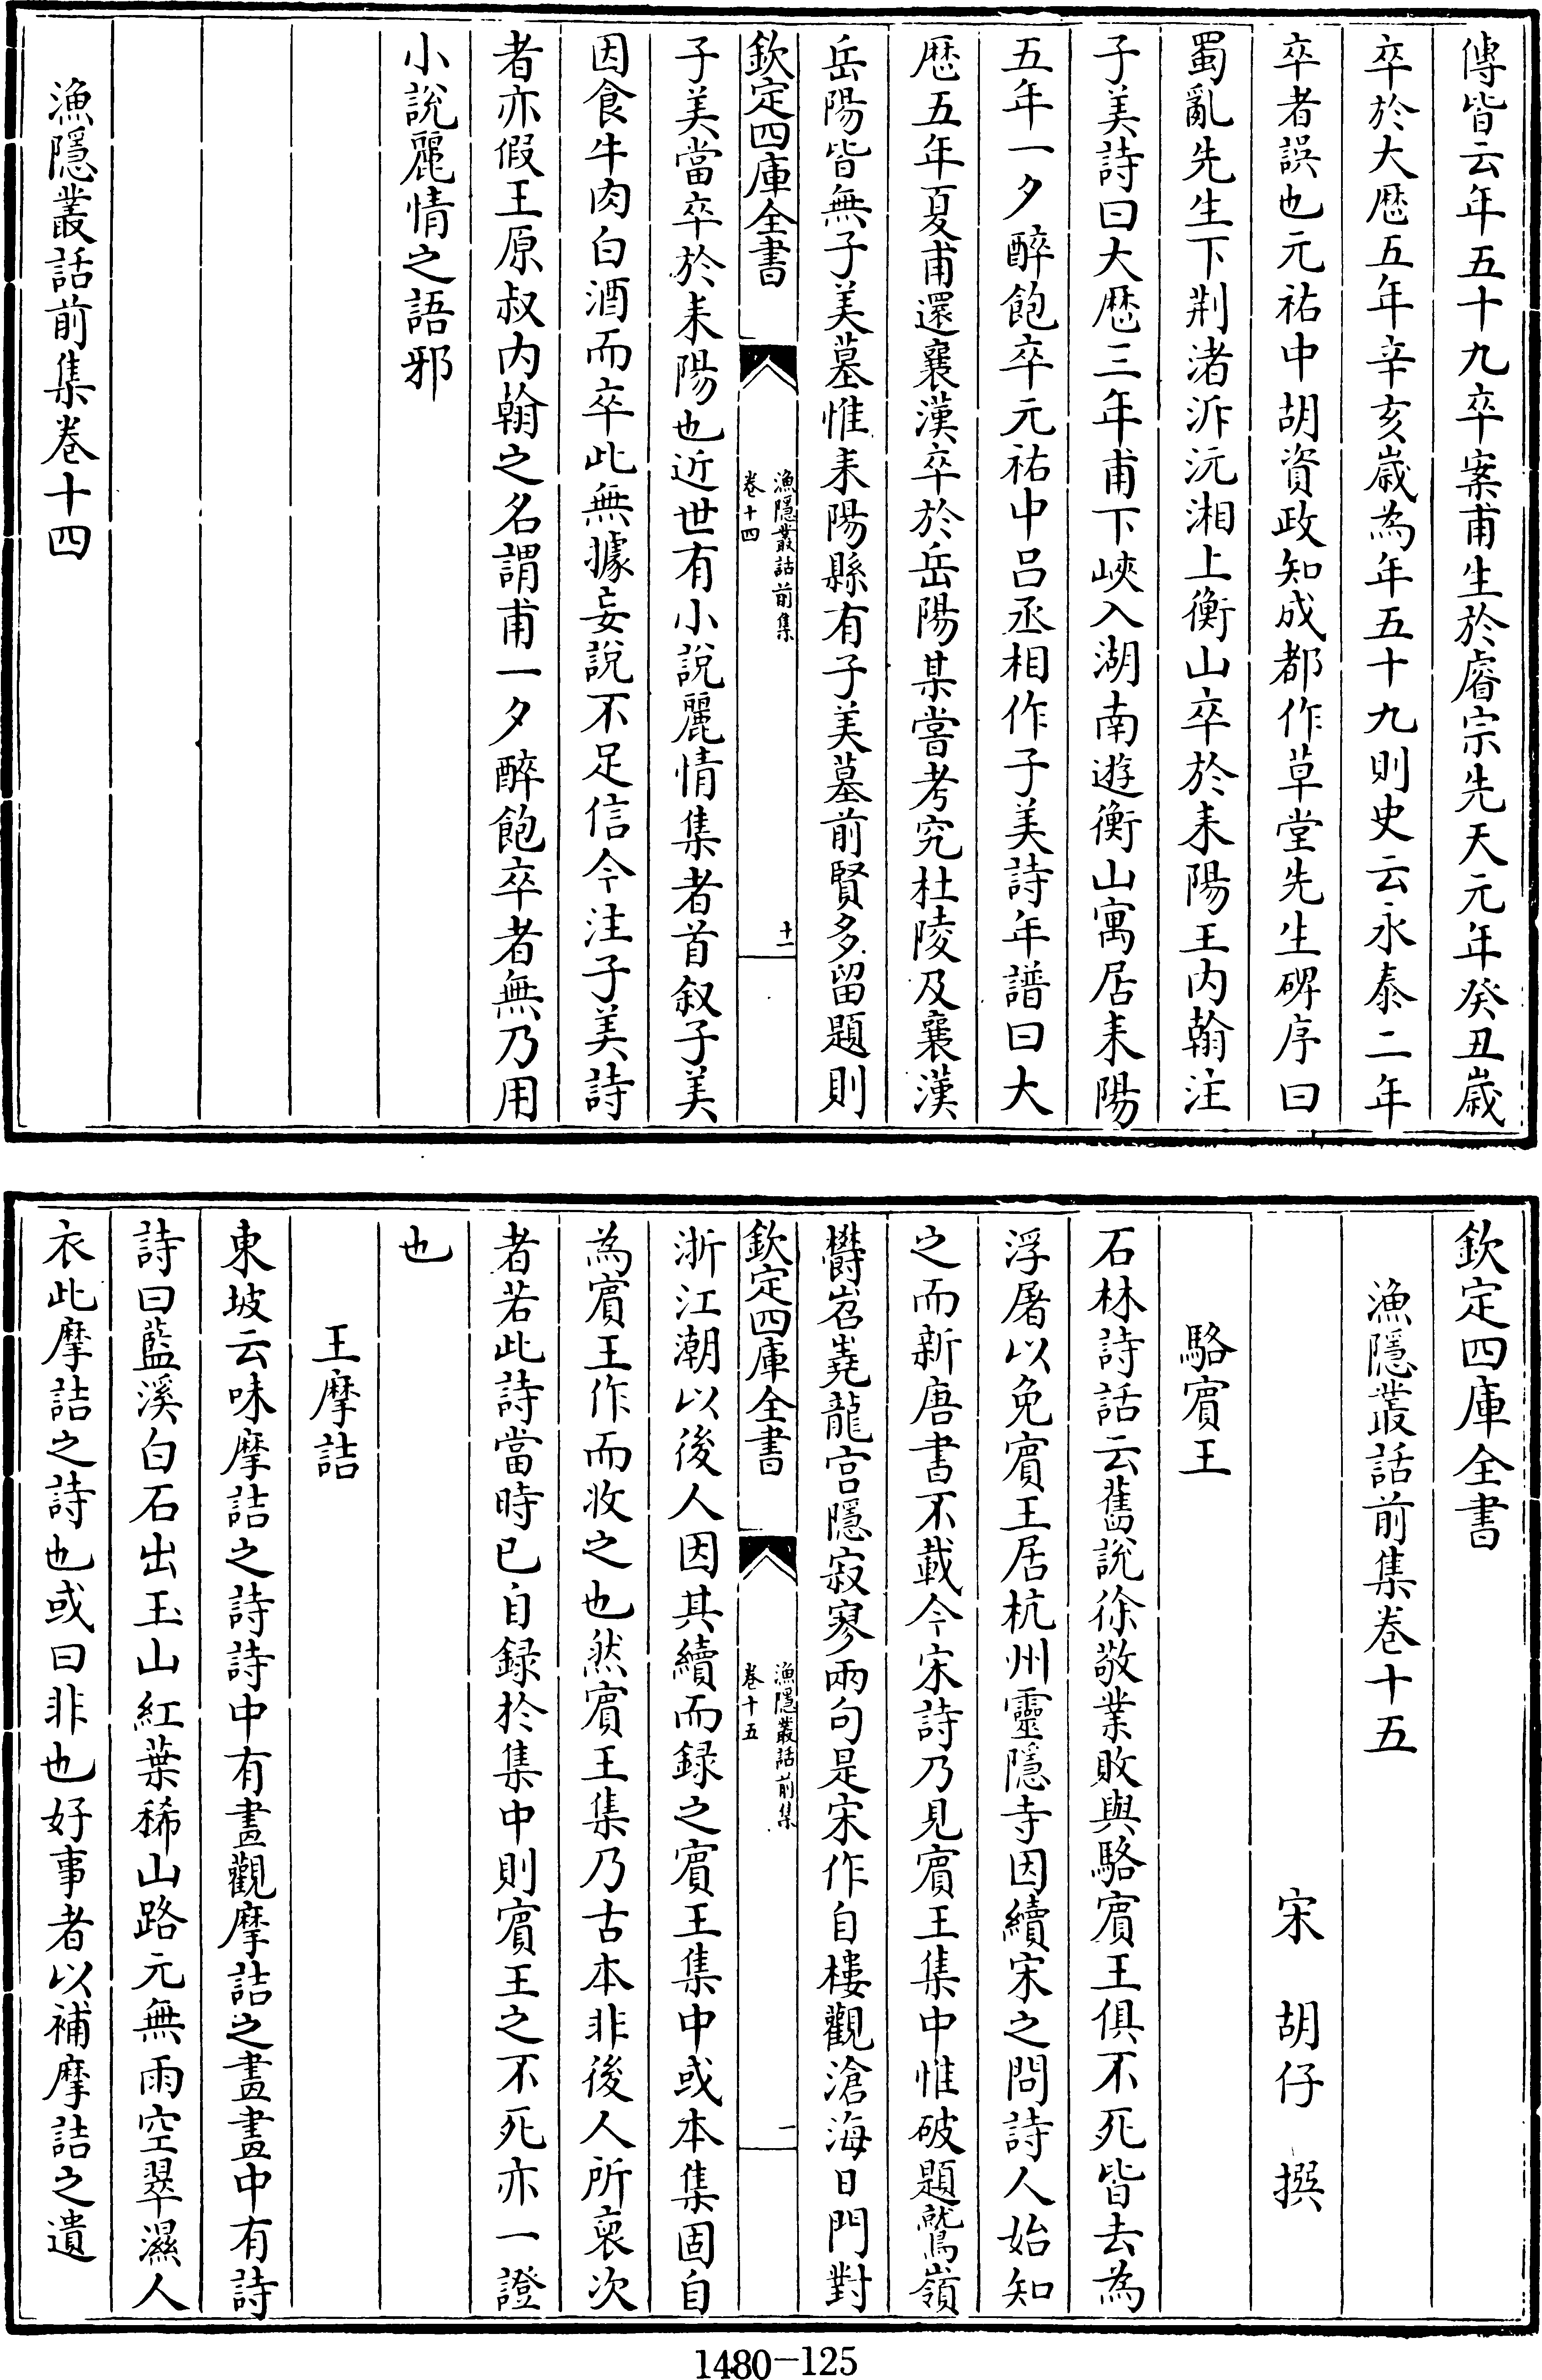 傳皆云年五十九卒案甫生於睿宗先天元年癸丑歲
卒於大歴五年辛亥歲為年五十九則史云永泰二年
卒者誤也元祐中胡資政知成都作草堂先生碑序曰
蜀亂先生下荆渚泝沅湘上衡山卒於耒陽王内翰注
子美詩曰大歴三年甫下峽入湖南遊衡山寓居耒陽
五年一夕醉飽卒元祐中吕丞相作子美詩年譜曰大
歴五年夏甫還襄漢卒於岳陽某嘗考究杜陵及襄漢
岳陽皆無子美墓惟耒陽縣有子美墓前賢多留題則
欽定四庫全書
漁隱叢話前集
卷十四
十一
子美當卒於耒陽也近世有小說麗情集者首叙子美
因食牛肉白酒而卒此無據妄說不足信今注子美詩
者亦假王原叔内翰之名謂甫一夕醉飽卒者無乃用
小說麗情之語邪
漁隱叢話前集卷十四
欽定四庫全書
漁隱叢話前集卷十五
宋 胡仔 撰
駱賔王
石林詩話云舊說徐敬業敗與駱賔王俱不死皆去為
浮屠以免賔王居杭州靈隱寺因續宋之問詩人始知
之而新唐書不載今宋詩乃見賔王集中惟破題鷲嶺
欝岧嶤龍宫隱寂寥兩句是宋作自樓觀滄海日門對
欽定四庫全書
漁隱叢話前集
卷十五
一
浙江潮以後人因其續而録之賔王集中或本集固自
為賔王作而收之也然賔王集乃古本非後人所裒次
者若此詩當時已自録於集中則賔王之不死亦一證
也
王摩詰
東坡云味摩詰之詩詩中有畫觀摩詰之畫畫中有詩
詩曰藍溪白石出玉山紅葉稀山路元無雨空翠濕人
衣此摩詰之詩也或曰非也好事者以補摩詰之遺
1480-125